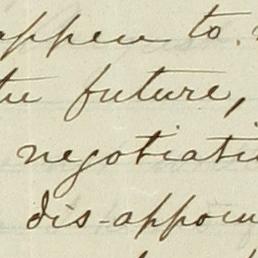 appen to
the future,
negotiati
dis-appoin